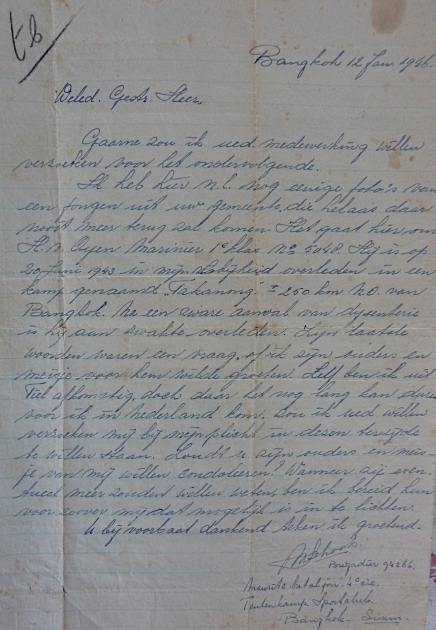 Bangkok 12 Jan 1946.
Weled. Gestr. Heer,
Gaarne zou ik uwd medewerking willen
verzoeken voor het ondervolgende.
Ik heb hier n.l. nog eenige foto's van
een jongen uit uw gemeente, die helaas daar
nooit meer terug zal komen. Het gaat hier om
H. v. Marinier 1e klas No 5048. Hij is op
20 Juni 1943 in mijn bijzijn overleden in een
kamp genaamd "Takanong" ± 250 km N.O. van
Bangkok. Na een zware aanval van dysenterie
is hij aan zwakte overleden. Zijn laatste
woorden waren een vraag, of ik zijn ouders en
meisje voor hem wilde groeten. Zelf ben ik uit
Tiel afkomstig, doch daar het nog lang kan duren
voor ik in Nederland kom, zou ik uwd willen
verzoeken mij bij mijn plicht in dezen terzijde
te willen staan. Zoudt u zijn ouders en meis-
je van mij willen condoleeren? Wanneer zij even-
tueel meer zouden willen weten, ben ik bereid hun
voor zoover mij dat mogelijk is in te lichten.
U bij voorbaat dankend teken ik groetend.
Brigadier 94266.
4e cie.
Tentenkamp Sportclub
Bangkok Siam.